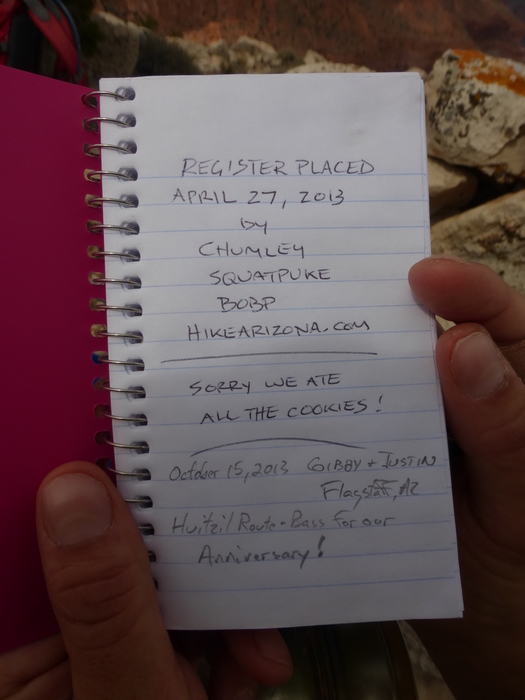 REGISTER PLACED
APRIL 27, 2013
by
CHUMLEY
SQUATPUKE
BOBP
HIKEARIZONA.COM
SORRY WE ATE
ALL THE COOKIES!
October 15, 2013 GIBBY + JUSTIN
Flagstaff, AZ
Huitzil Route - Bass for our
Anniversary!